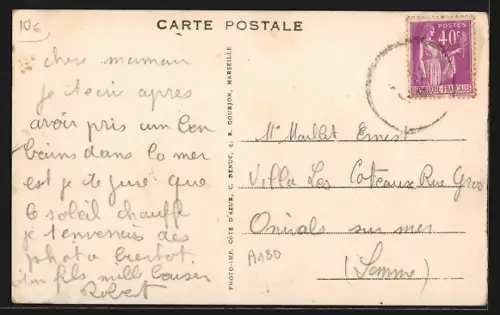 10€
CARTE POSTALE
POSTES
40c
chere maman
je t'ecri apres
avoir pris un bon
bains dans la mer
est je te jure que
le soleil chauffe
je t'enverais des
photo a bientot.
ton fils mille baiser
Robert
PHOTO-IMP. CÔTE D'AZUR, C. DENUC, 4, R. GOURJON, MARSEILLE
Mr Marllet Ernest
Villa Les Coteaux Rue
Onivals sur mer
(Somme)
A180